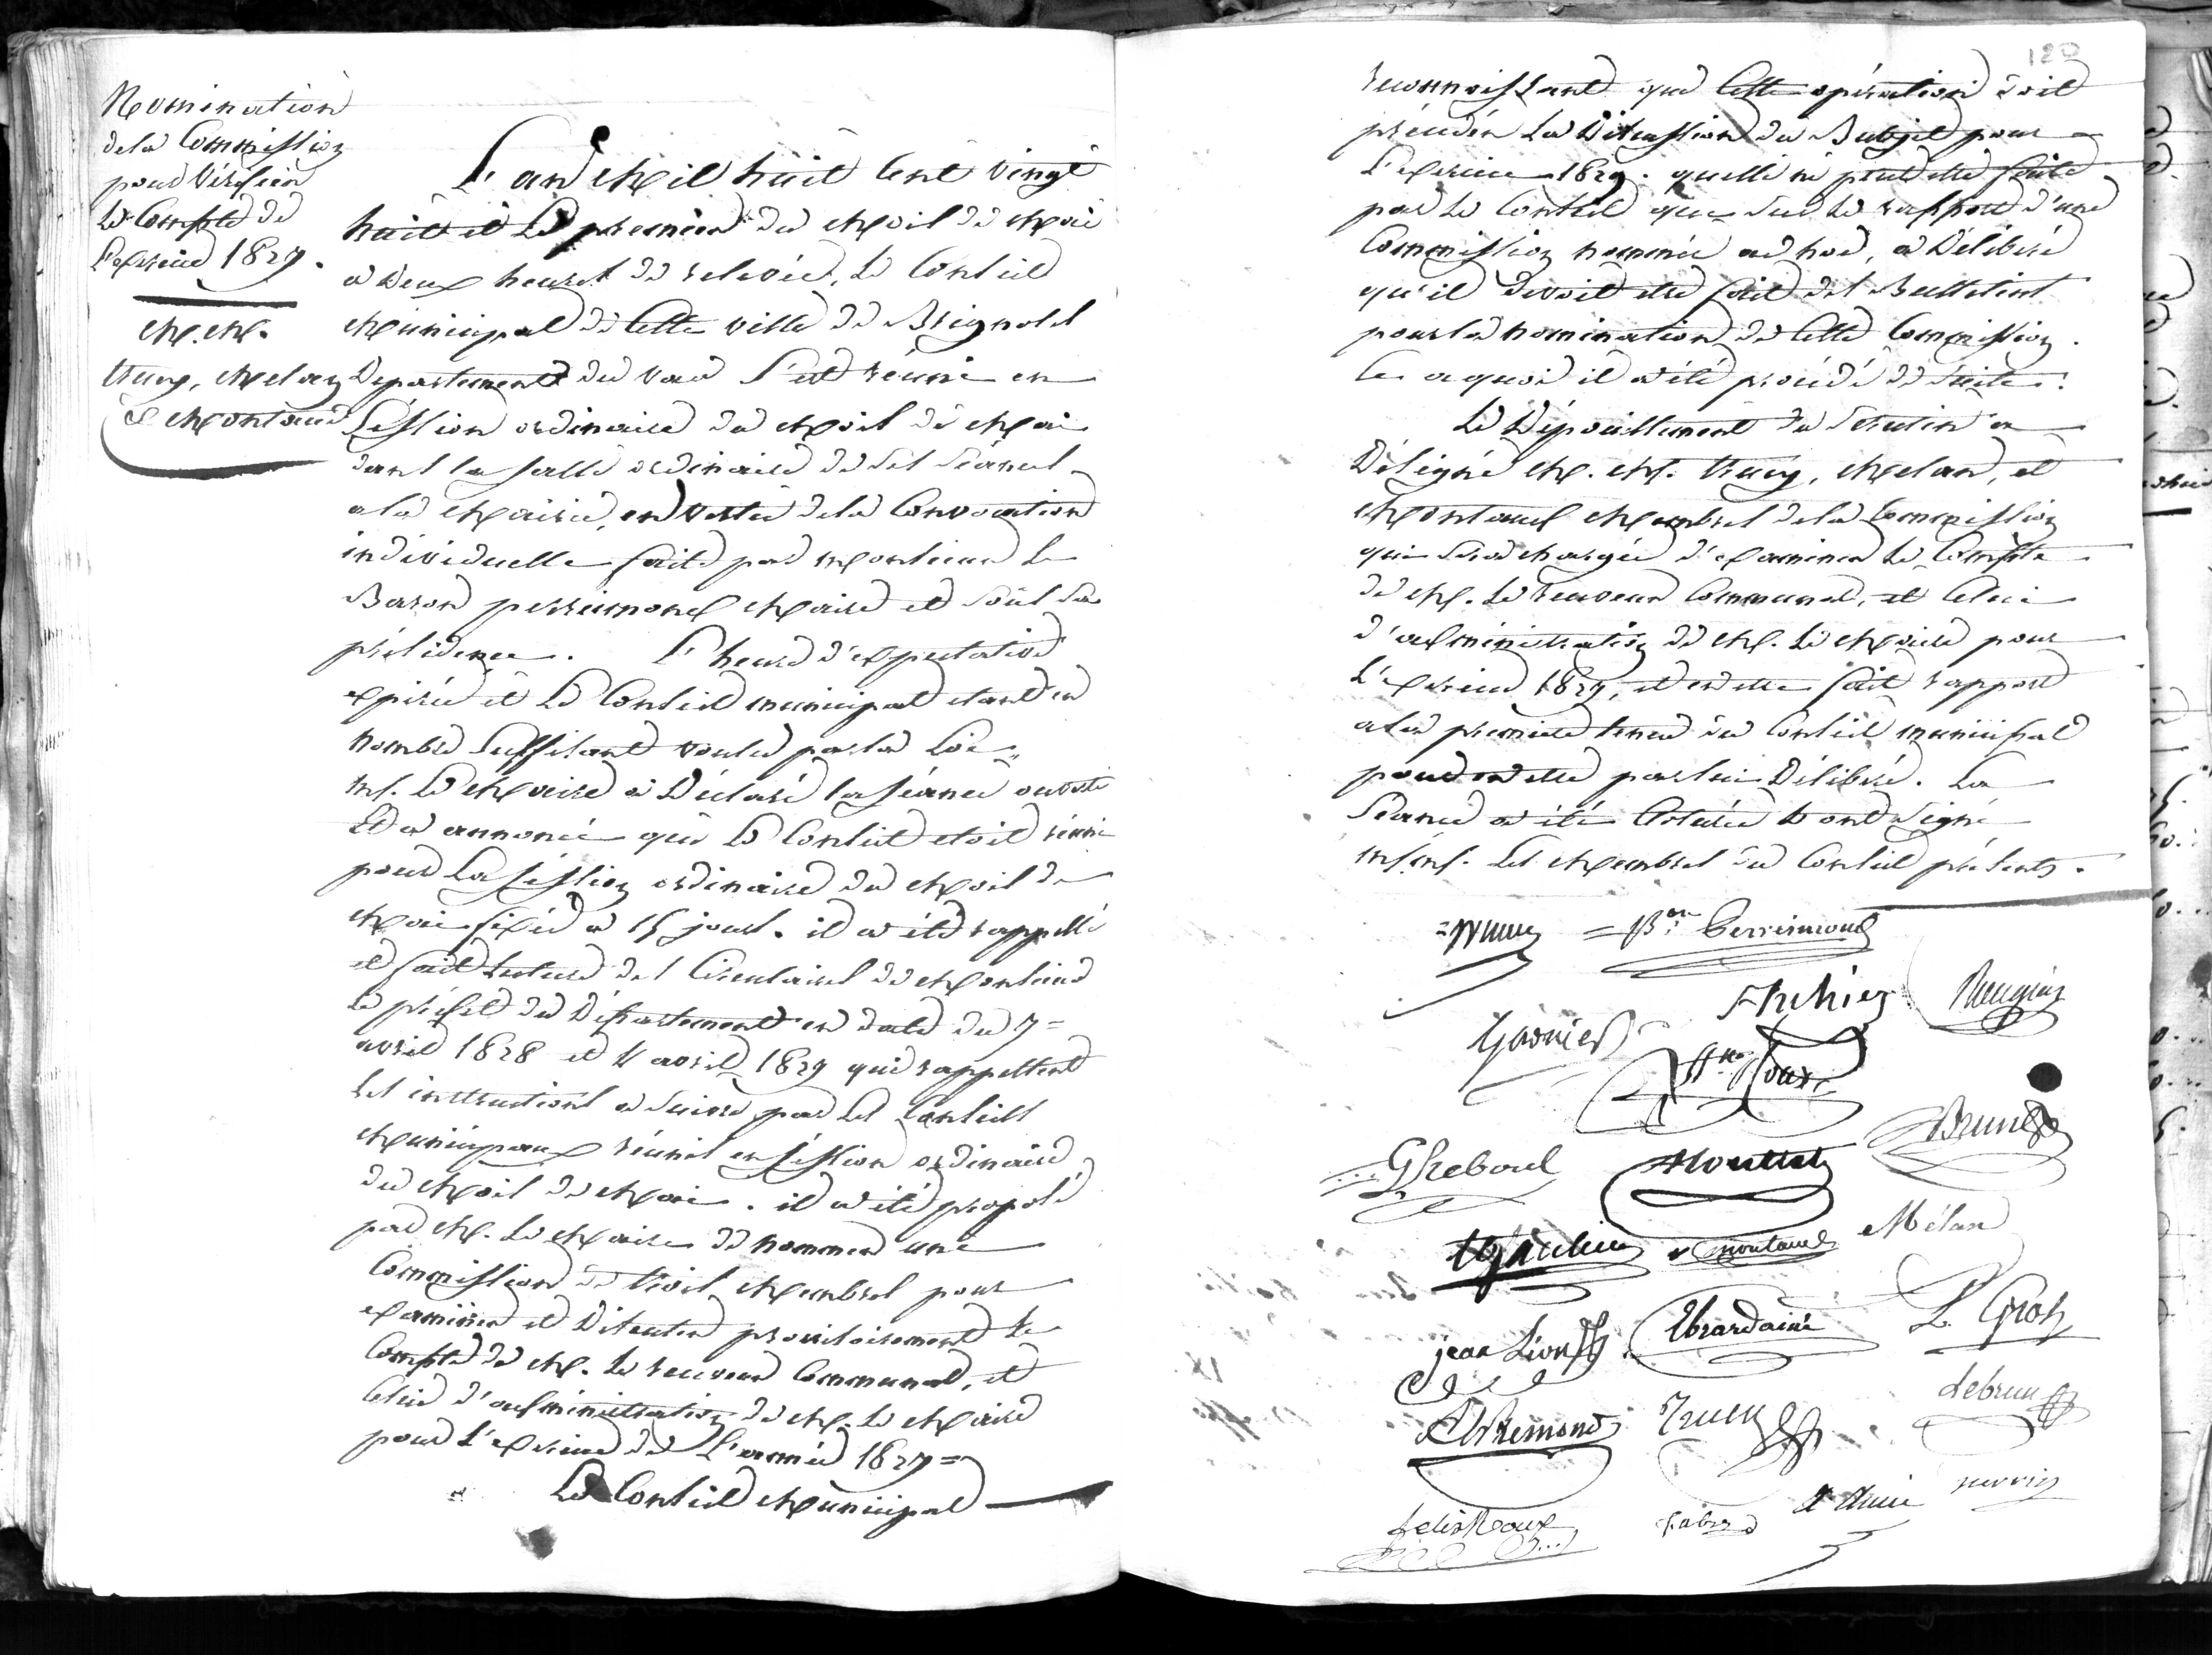 Nomination
de la Commission
pour Vérifier
le Compte de
l'Exercice 1827.
M.M.
Trucy, Melan
& Montaud
L'an Mil huit Cent vingt
huit et le premier du Mois de Mai
à Deux heures de relevée, le Conseil
Municipal de Cette ville de Brignoles
Departement du Var S'est réuni en
Session ordinaire du Mois de Mai
dans la salle ordinaire de ses Séances
a la Mairie, en vertu de la Convocation
individuelle faite par Monsieur le
Baron perrimond Maire et Sous Sa
présidence. L'heure d'expectative
expirée et Le Conseil municipal etant en
nombre Suffisant voulu par la Loi
M. Le Maire a Déclaré la séance ouverte
Et a annoncé que Le Conseil etoit réuni
pour La Session ordinaire du Mois de
Mai fixée a 15 jours. il a été rappellé
et fait lecture des Circulaires de Monsieur
le préfet du Département en date du 7=
avril 1828 et avril 1827 qui rappellent
les instructions a Suivre par Les Conseils
Municipaux réunis en Session ordinaire
du Mois de Mai. il a été proposé
par M. le Maire de nommer une
Commission de trois Membres pour
Examiner et Discuter provisoirement le
Compte de M. le receveur Communal, et
Celui d'administration de M. le Maire
pour l'Exercice de L'année 1827=
Le Conseil Municipal
120
reconnoissant que Cette opération doit
précéder La Discussion du Budjet pour
L'Exercice 1829. quelle ne peut etre faite
par le Conseil que Sur le rapport d'une
Commission nommée ad hoc, a Délibéré
qu'il devoit etre fait des Bulletins
pour la nomination de Cette Commission.
Ce a quoi il a été procédé de Suite.
Le Dépouillement du Scrutin a
Désigné M. M. Trucy, Melan, et
Montaud Membres de la Commission
qui Sera chargée d'Examiner le Compte
de M. le receveur Communal, et Celui
d'administration de M. le Maire pour
L'Exercice 1827, et en etre fait rapport
a la premiere tenue du Conseil municipal
pour en etre par lui Délibéré. La
Séance a été Cloturée & ont Signé
M.M. Les Membres du Conseil présents.
= Bon Perrimond
Garnier
Roux
GReboul
Mouttet
Brun
Montaud
Mélan
jean Lion
Ebrard ainé
L. Gros
Remond
Trucy
lebrun
felix Roux
fabre